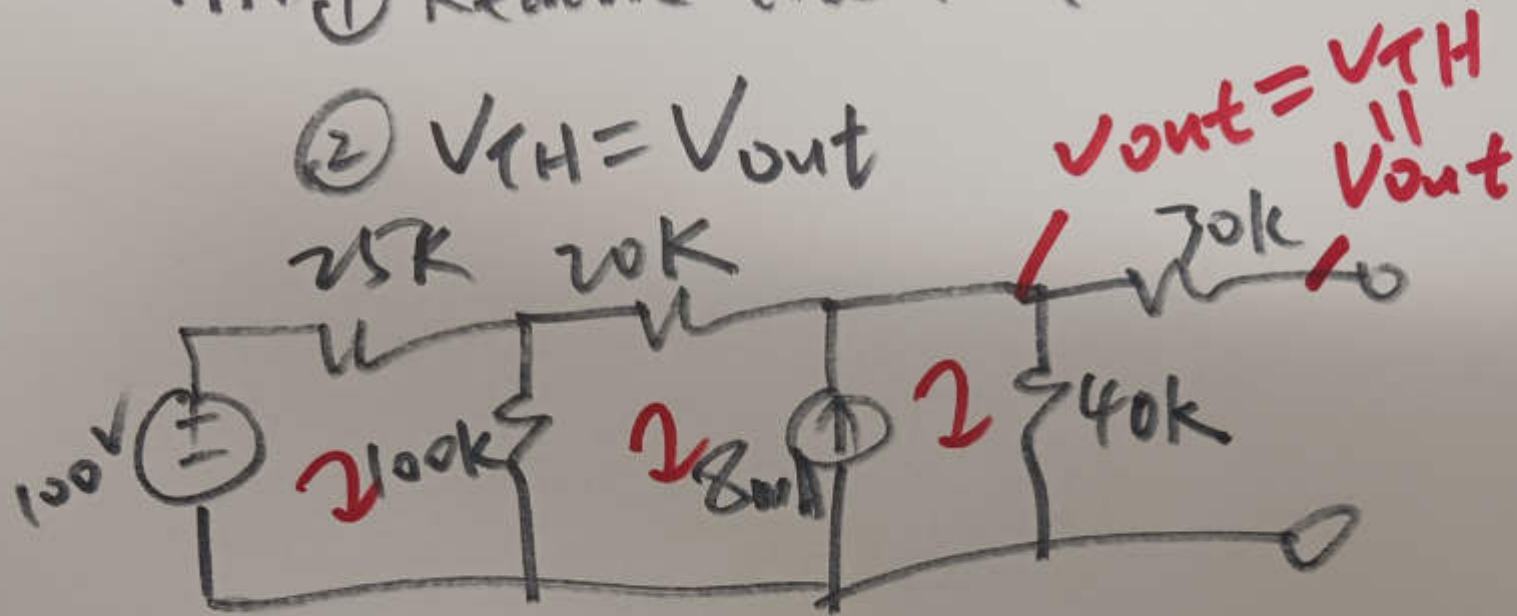 ①
② VTH = Vout
Vout = VTH
||
Vout
25K 20K 30k
100V 100k 8mA 40k